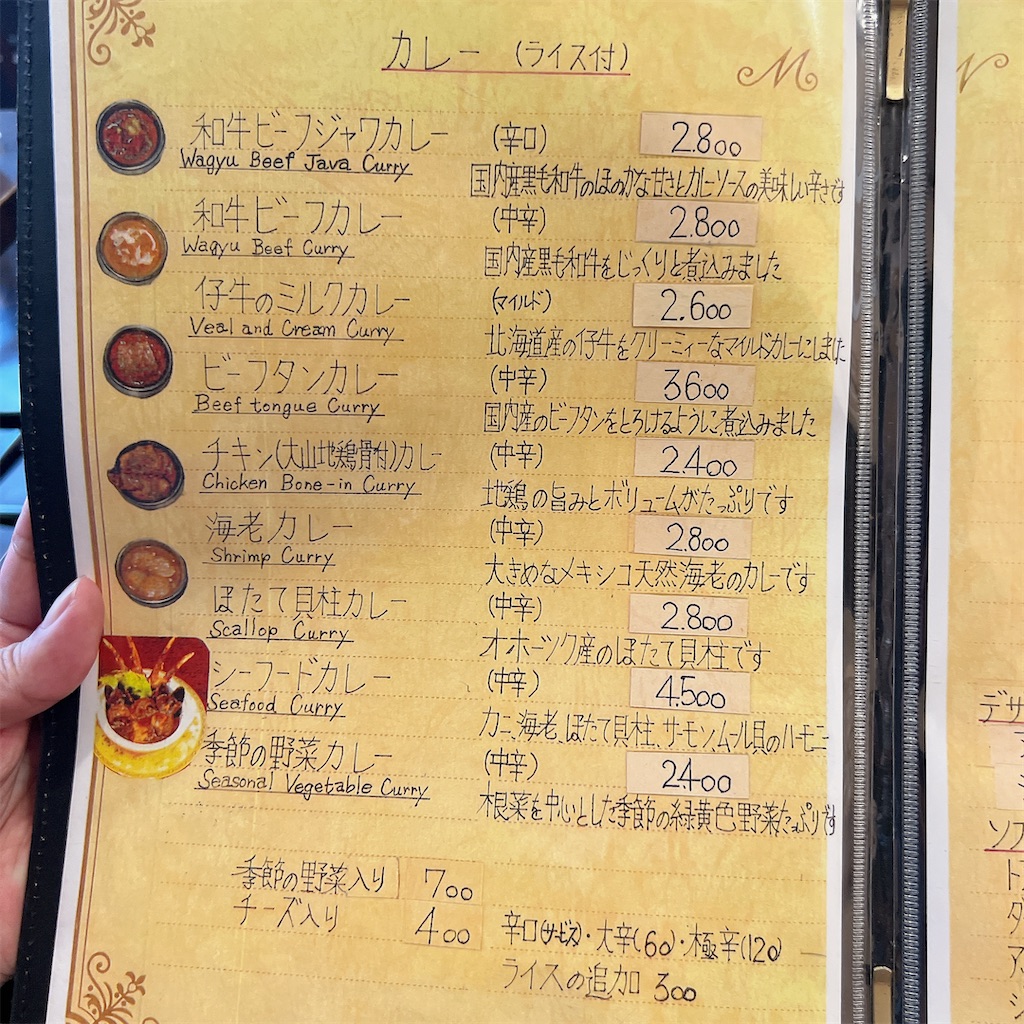 カレー (ライス付)
M
和牛ビーフジャワカレー (辛口) 2.800
Wagyu Beef Java Curry
国内産黒毛和牛のほのかな甘さとカレーソースの美味しい辛さです
和牛ビーフカレー (中辛) 2.800
Wagyu Beef Curry
国内産黒毛和牛をじっくりと煮込みました
仔牛のミルクカレー (マイルド) 2.600
Veal and Cream Curry
北海道産の仔牛をクリーミィーなマイルドカレーにしました
ビーフタンカレー (中辛) 3600
Beef tongue Curry
国内産のビーフタンをとろけるように煮込みました
チキン(大山地鶏骨付)カレー (中辛) 2.400
Chicken Bone-in Curry
地鶏の旨みとボリュームがたっぷりです
海老カレー (中辛) 2.800
Shrimp Curry
大きめなメキシコ天然海老のカレーです
ほたて貝柱カレー (中辛) 2.800
Scallop Curry
オホーツク産のほたて貝柱です
シーフードカレー (中辛) 4.500
Seafood Curry
カニ、海老、ほたて貝柱、サーモン、ムール貝のハーモニー
季節の野菜カレー (中辛) 2.400
Seasonal Vegetable Curry
根菜を中心とした季節の緑黄色野菜たっぷりです
季節の野菜入り 700
チーズ入り 400
辛口(サービス)・大辛(60)・極辛(120)
ライスの追加 300
デザ
ソフ